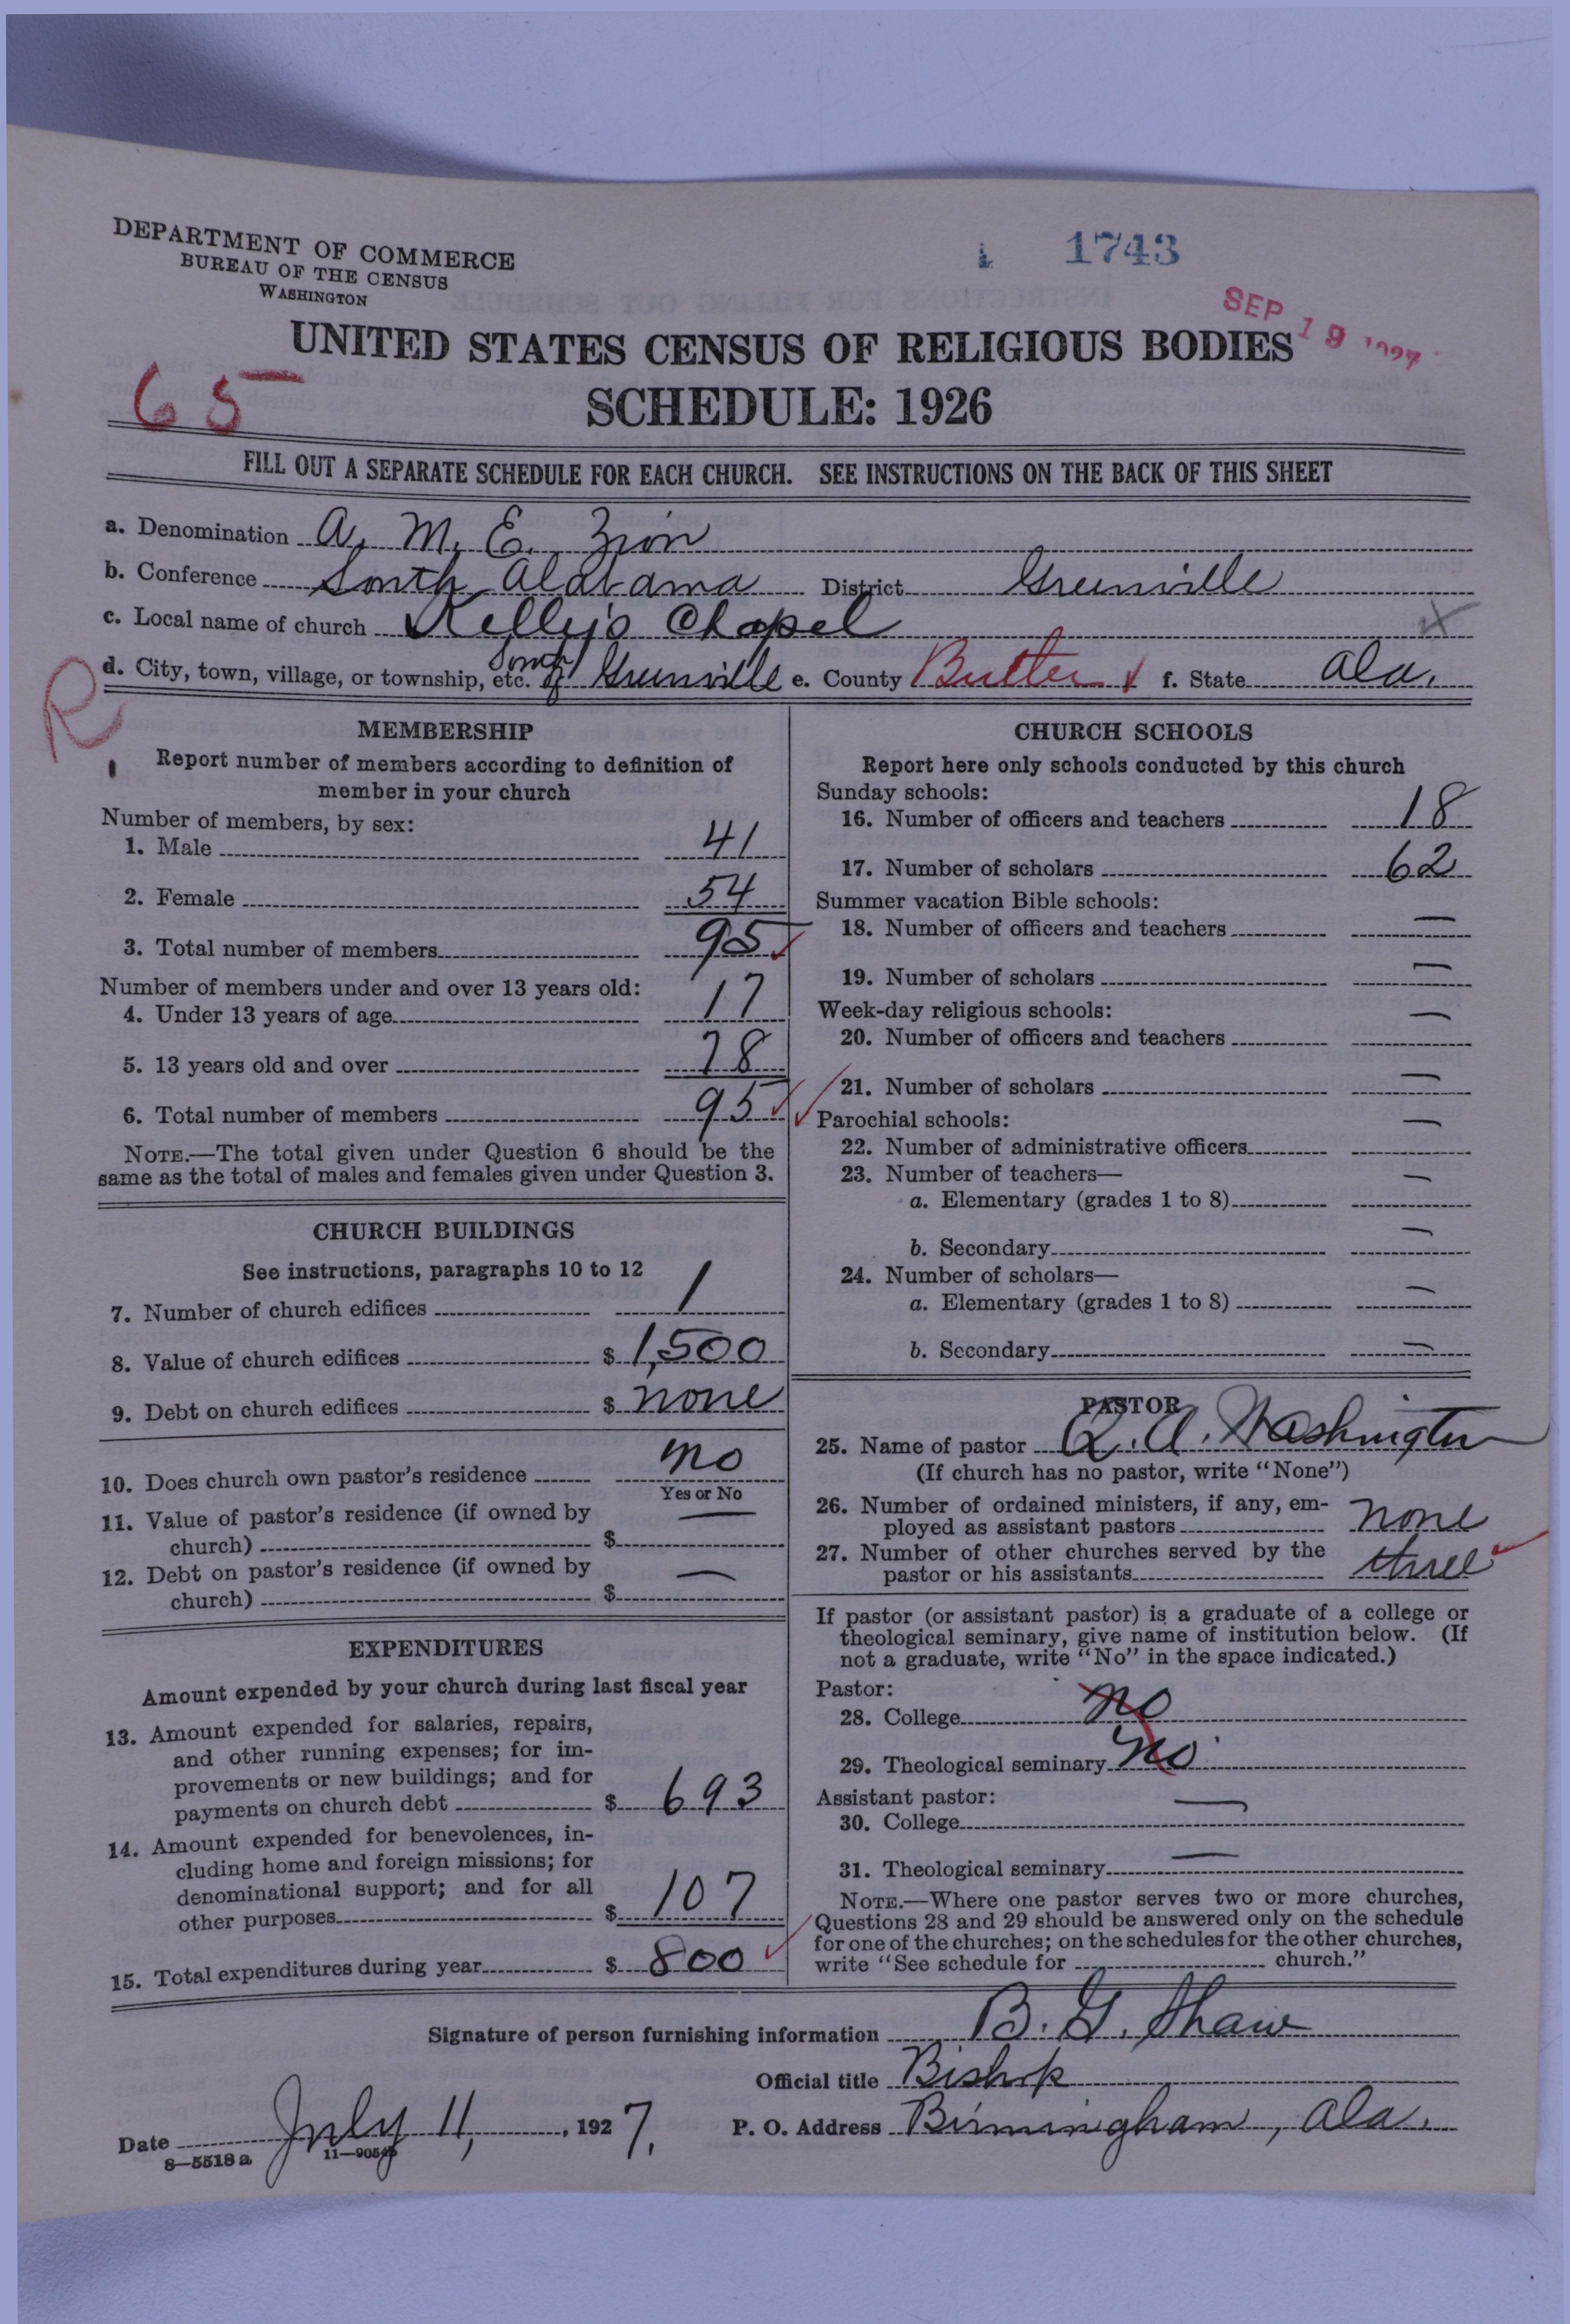 DEPARTMENT OF COMMERCE
BUREAU OF THE CENSUS
WASHINGTON
1743
SEP 19 1927
UNITED STATES CENSUS OF RELIGIOUS BODIES
65
SCHEDULE: 1926
FILL OUT A SEPARATE SCHEDULE FOR EACH CHURCH. SEE INSTRUCTIONS ON THE BACK OF THIS SHEET
a. Denomination A. M. E. Zion
b. Conference South Alabama District Greenville
c. Local name of church Kelly's Chapel
d. City, town, village, or township, etc. South of Greenville e. County Butler f. State Ala.
R
MEMBERSHIP
Report number of members according to definition of
member in your church
Number of members, by sex:
1. Male 41
2. Female 54
3. Total number of members 95
Number of members under and over 13 years old:
4. Under 13 years of age 17
5. 13 years old and over 78
6. Total number of members 95
NOTE.—The total given under Question 6 should be the
same as the total of males and females given under Question 3.
CHURCH BUILDINGS
See instructions, paragraphs 10 to 12
7. Number of church edifices 1
8. Value of church edifices $ 1,500
9. Debt on church edifices $ none
10. Does church own pastor's residence no
Yes or No
11. Value of pastor's residence (if owned by
church) $ —
12. Debt on pastor's residence (if owned by
church) $ —
EXPENDITURES
Amount expended by your church during last fiscal year
13. Amount expended for salaries, repairs,
and other running expenses; for im-
provements or new buildings; and for
payments on church debt $ 693
14. Amount expended for benevolences, in-
cluding home and foreign missions; for
denominational support; and for all
other purposes $ 107
15. Total expenditures during year $ 800
CHURCH SCHOOLS
Report here only schools conducted by this church
Sunday schools:
16. Number of officers and teachers 18
17. Number of scholars 62
Summer vacation Bible schools:
18. Number of officers and teachers —
19. Number of scholars —
Week-day religious schools:
20. Number of officers and teachers —
21. Number of scholars —
Parochial schools:
22. Number of administrative officers —
23. Number of teachers—
a. Elementary (grades 1 to 8) —
b. Secondary —
24. Number of scholars—
a. Elementary (grades 1 to 8) —
b. Secondary —
PASTOR
25. Name of pastor Q. A. Washington
(If church has no pastor, write "None")
26. Number of ordained ministers, if any, em-
ployed as assistant pastors none
27. Number of other churches served by the
pastor or his assistants three
If pastor (or assistant pastor) is a graduate of a college or
theological seminary, give name of institution below. (If
not a graduate, write "No" in the space indicated.)
Pastor:
28. College no
29. Theological seminary no
Assistant pastor:
30. College —
31. Theological seminary —
NOTE.—Where one pastor serves two or more churches,
Questions 28 and 29 should be answered only on the schedule
for one of the churches; on the schedules for the other churches,
write "See schedule for church."
Signature of person furnishing information B. G. Shaw
Official title Bishop
Date July 11, 1927. P. O. Address Birmingham, Ala.
8—5518a 11—9054b